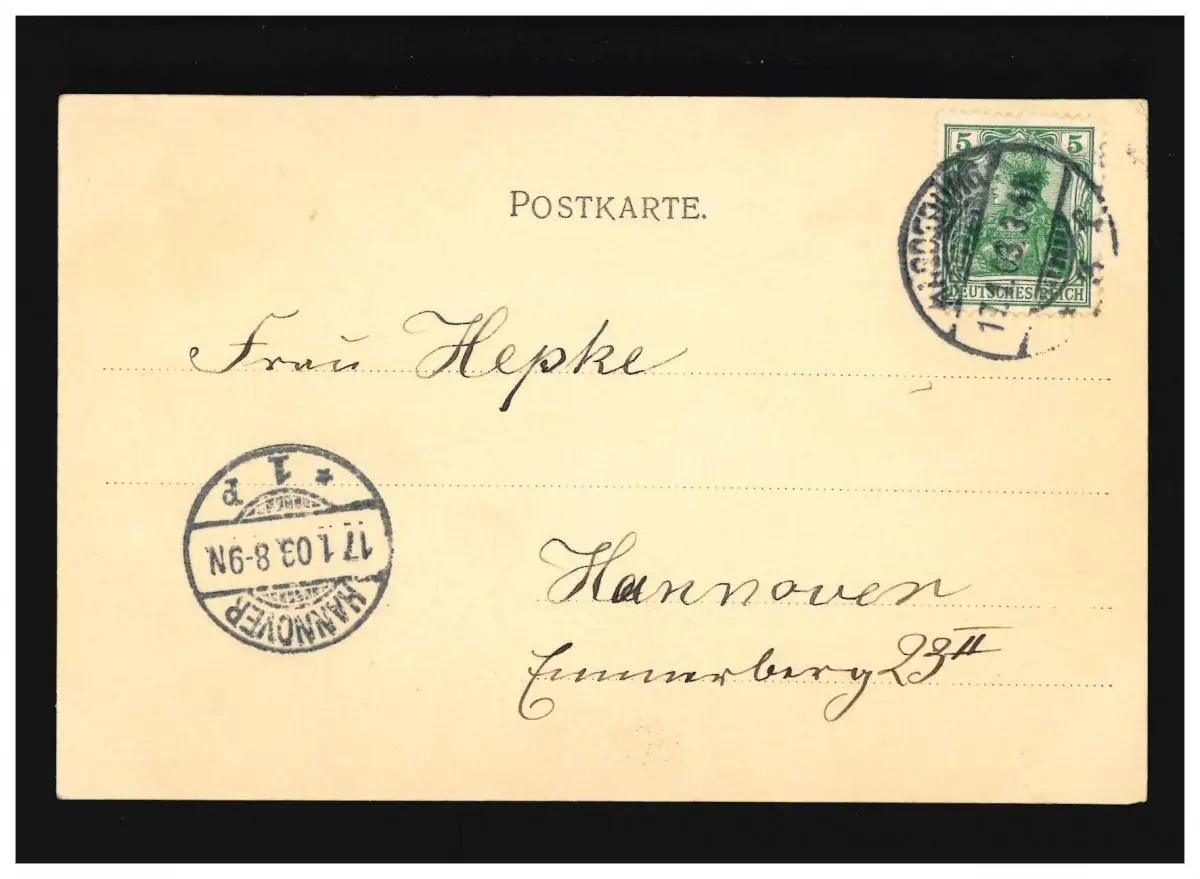 5 5
DEUTSCHES REICH
MAGDEBURG
POSTKARTE.
Frau Hepke
* 1 P
17.1.03.8-9N.
HANNOVER
Hannover
Emmerberg 23 II